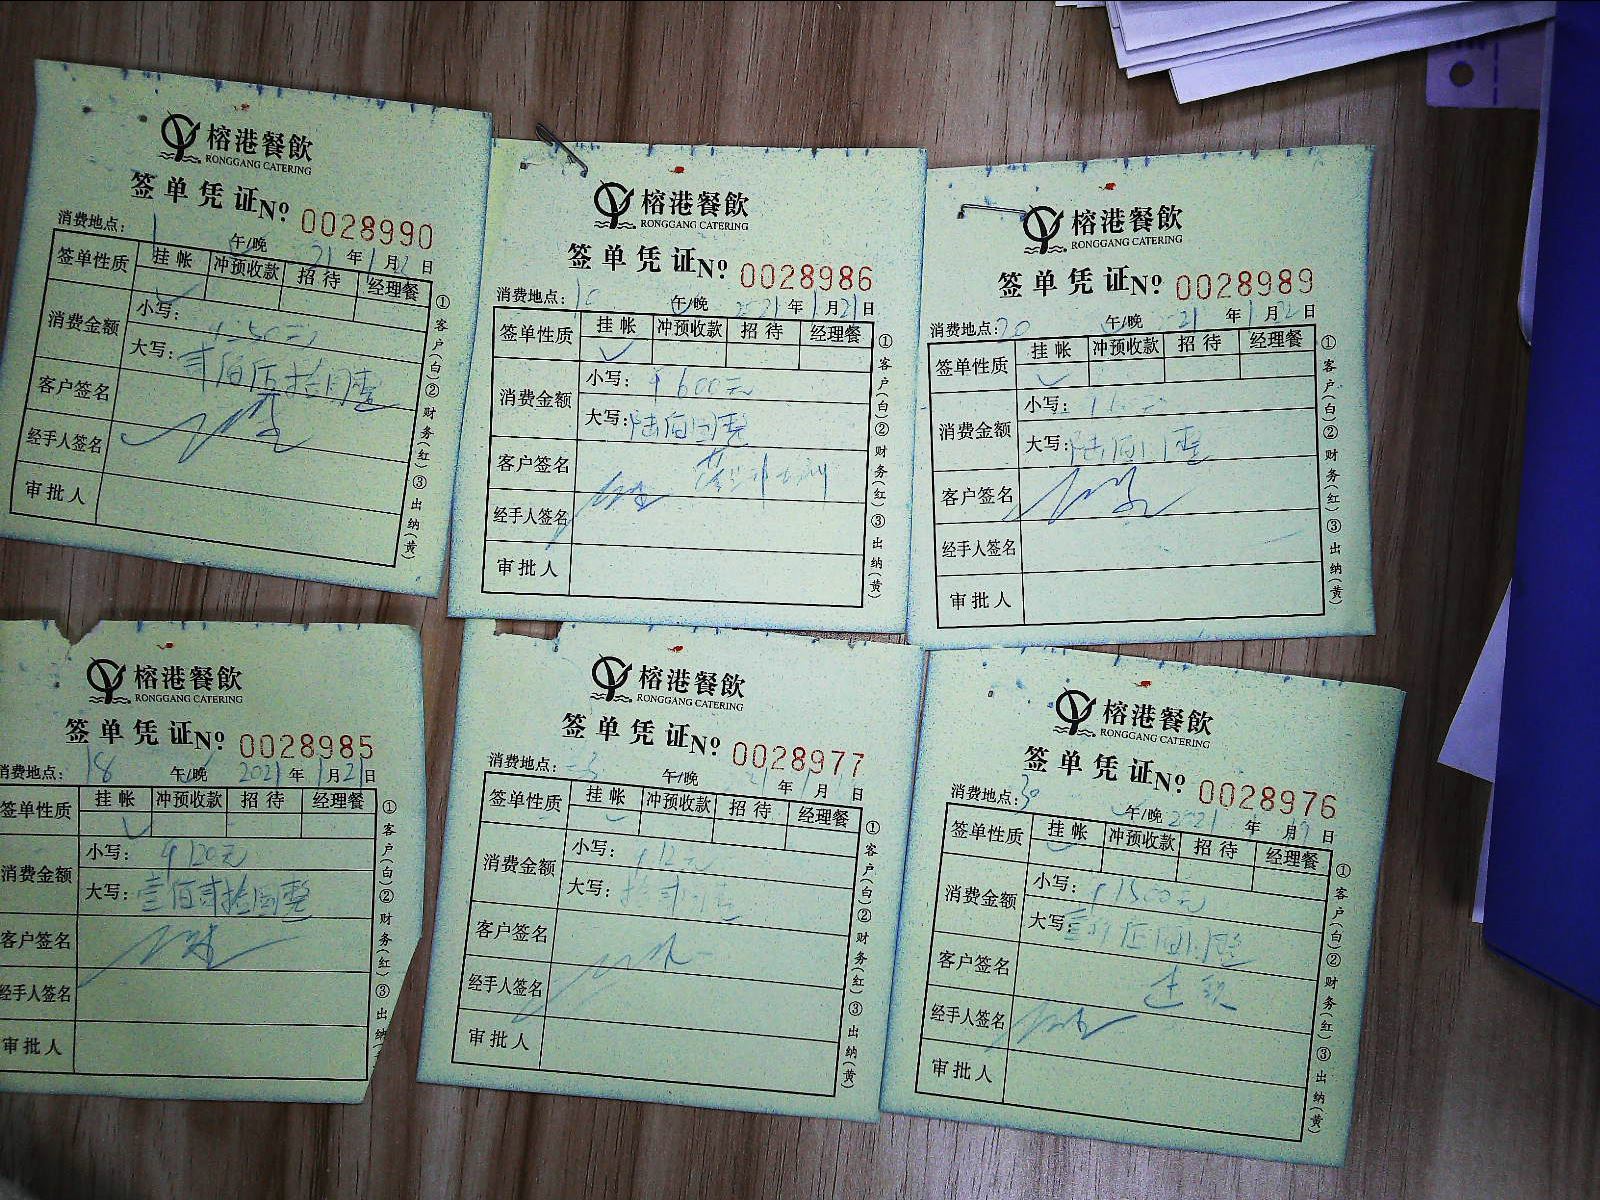 榕港餐飲
RONGGANG CATERING
签单凭证 Nº 0028990
消费地点: 午/晚 21年1月2日
签单性质 挂帐 冲预收款 招待 经理餐
消费金额 小写:
大写: 贰佰伍拾圆整
客户签名
经手人签名
审批人
①客户(白)②财务(红)③出纳(黄)
榕港餐飲
RONGGANG CATERING
签单凭证 Nº 0028986
消费地点: 午/晚 2021年1月21日
签单性质 挂帐 冲预收款 招待 经理餐
消费金额 小写: ¥600元
大写: 陆佰圆整
客户签名
经手人签名
审批人
①客户(白)②财务(红)③出纳(黄)
榕港餐飲
RONGGANG CATERING
签单凭证 Nº 0028989
消费地点: 20 午/晚 21年1月2日
签单性质 挂帐 冲预收款 招待 经理餐
消费金额 小写:
大写: 陆佰 整
客户签名
经手人签名
审批人
①客户(白)②财务(红)③出纳(黄)
榕港餐飲
RONGGANG CATERING
签单凭证 Nº 0028985
消费地点: 18 午/晚 2021年1月21日
签单性质 挂帐 冲预收款 招待 经理餐
消费金额 小写: ¥120元
大写: 壹佰贰拾圆整
客户签名
经手人签名
审批人
①客户(白)②财务(红)③出纳
榕港餐飲
RONGGANG CATERING
签单凭证 Nº 0028977
消费地点: 午/晚 21年1月 日
签单性质 挂帐 冲预收款 招待 经理餐
消费金额 小写: ¥12元
大写: 拾贰 整
客户签名
经手人签名
审批人
①客户(白)②财务(红)③出纳(黄)
榕港餐飲
RONGGANG CATERING
签单凭证 Nº 0028976
消费地点: 30 午/晚 2021年 月19日
签单性质 挂帐 冲预收款 招待 经理餐
消费金额 小写: ¥1500元
大写 壹仟伍佰圆整
客户签名
经手人签名
审批人
①客户(白)②财务(红)③出纳(黄)